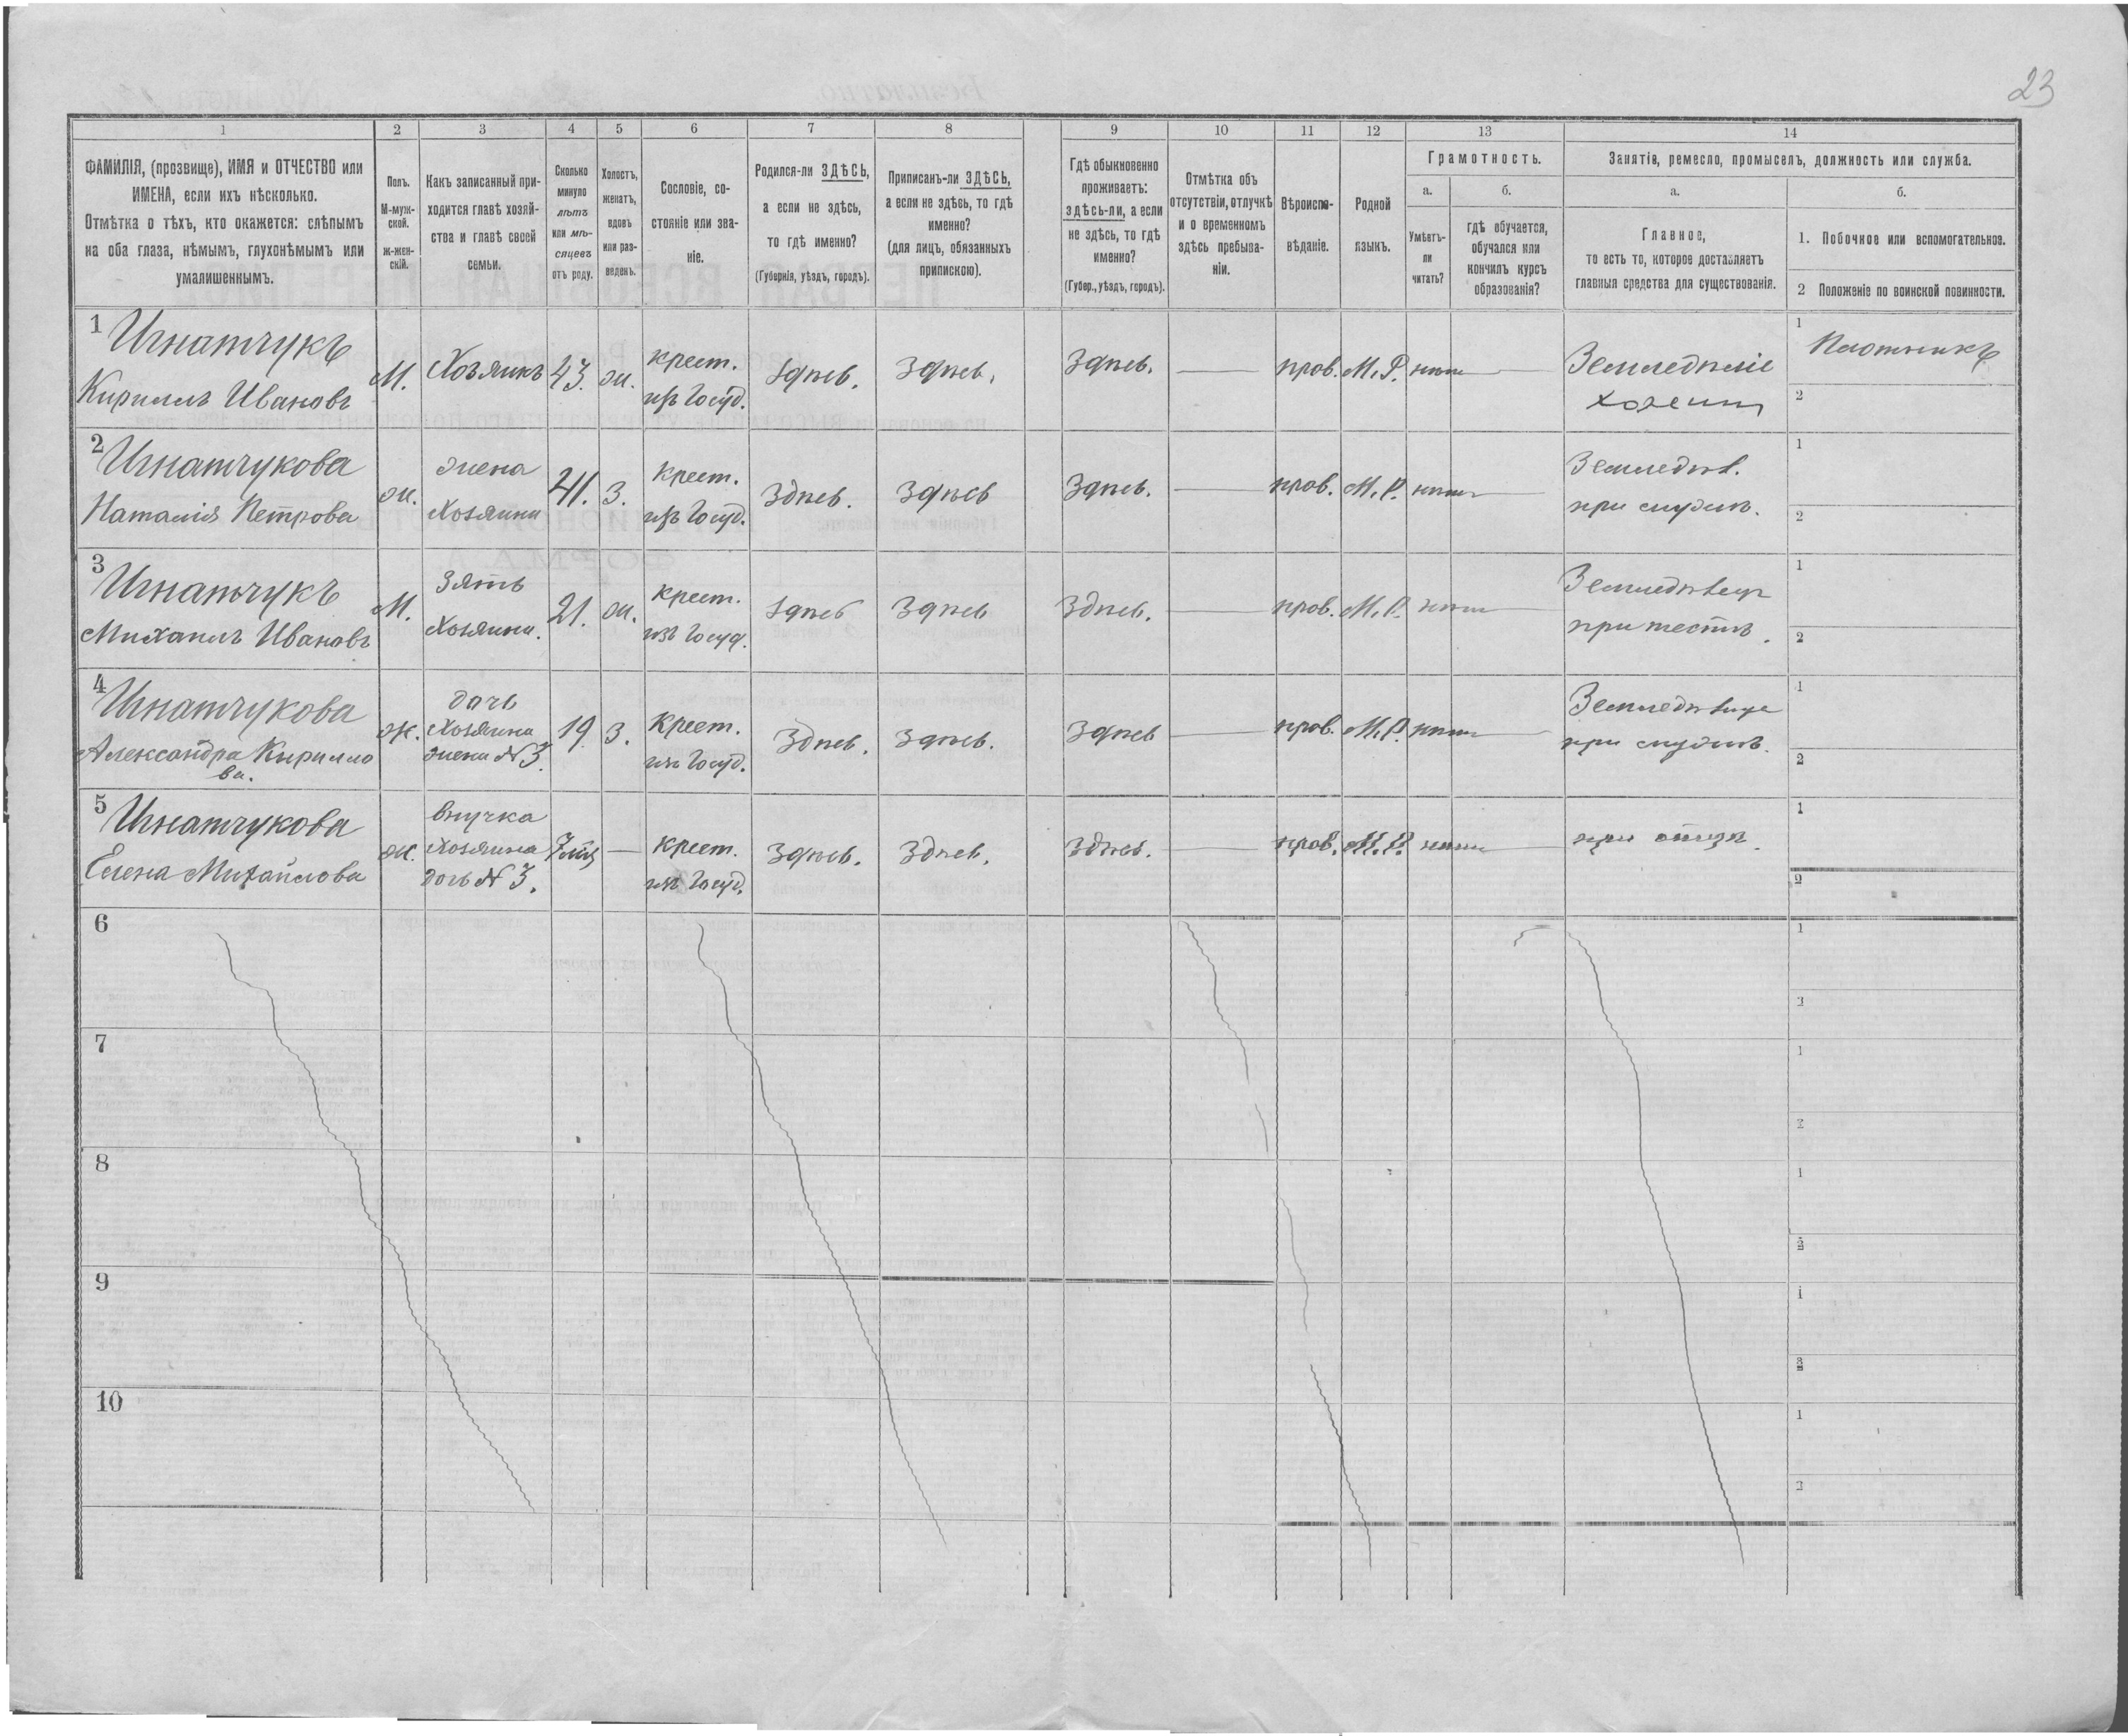 23
1 2 3 4 5 6 7 8 9 10 11 12 13 14
ФАМИЛІЯ, (прозвище), ИМЯ и ОТЧЕСТВО или
ИМЕНА, если ихъ нѣсколько.
Отмѣтка о тѣхъ, кто окажется: слѣпымъ
на оба глаза, нѣмымъ, глухонѣмымъ или
умалишеннымъ.
Полъ.
М-муж-
ской.
ж-жен-
скій.
Какъ записанный при-
ходится главѣ хозяй-
ства и главѣ своей
семьи.
Сколько
минуло
лѣтъ
или мѣ-
сяцевъ
отъ роду.
Холостъ,
женатъ,
вдовъ
или раз-
веденъ.
Сословіе, со-
стояніе или зва-
ніе.
Родился-ли ЗДѢСЬ,
а если не здѣсь,
то гдѣ именно?
(Губернія, уѣздъ, городъ).
Приписанъ-ли ЗДѢСЬ,
а если не здѣсь, то гдѣ
именно?
(для лицъ, обязанныхъ
припискою).
Гдѣ обыкновенно
проживаетъ:
здѣсь-ли, а если
не здѣсь, то гдѣ
именно?
(Губер., уѣздъ, городъ).
Отмѣтка объ
отсутствіи, отлучкѣ
и о временномъ
здѣсь пребыва-
ніи.
Вѣроиспо-
вѣданіе.
Родной
языкъ.
Грамотность.
а.
Умѣетъ-
ли
читать?
б.
гдѣ обучается,
обучался или
кончилъ курсъ
образованія?
Занятіе, ремесло, промыселъ, должность или служба.
а.
Главное,
то есть то, которое доставляетъ
главныя средства для существованія.
б.
1. Побочное или вспомогательное.
2 Положеніе по воинской повинности.
1
Игнатчукъ
Кириллъ Ивановъ
М.
Хозяинъ
43.
ж.
крест.
изъ Госуд.
Здѣсь.
Здѣсь.
Здѣсь.
—
пров.
М.Р.
нѣтъ
—
Земледѣліе
хозяинъ
1
Плотникъ
2
2
Игнатчукова
Наталія Петрова
ж.
жена
Хозяина
41.
З.
крест.
изъ Госуд.
Здѣсь.
Здѣсь
Здѣсь.
—
пров.
М.Р.
нѣтъ
—
Земледѣл.
при мужѣ.
1
2
3
Игнатчукъ
Михаилъ Ивановъ
М.
Зять
Хозяина.
21.
ж.
крест.
изъ Госуд.
Здѣсь
Здѣсь
Здѣсь.
—
пров.
М.Р.
нѣтъ
—
при тестѣ.
1
2
4
Игнатчукова
Александра Кирилло
ва.
ж.
дочь
Хозяина
жена № 3.
19
З.
Крест.
изъ Госуд.
Здѣсь.
Здѣсь.
Здѣсь
—
пров.
М.Р.
нѣтъ
—
при мужѣ.
1
2
5
Игнатчукова
Елена Михайлова
ж.
внучка
Хозяина
дочь № 3.
—
крест.
изъ Госуд.
Здѣсь.
Здѣсь.
Здѣсь.
—
пров.
М.Р.
нѣтъ
—
при отцѣ.
1
2
6
1
2
7
1
2
8
1
2
9
1
2
10
1
2